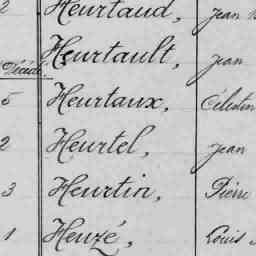 2 Heurtaud, Jean
Heurtault, Jean
Décédé.
5 Heurtaux, Célestin
2 Heurtel, Jean
3 Heurtin, Pierre
1 Heuzé, Louis